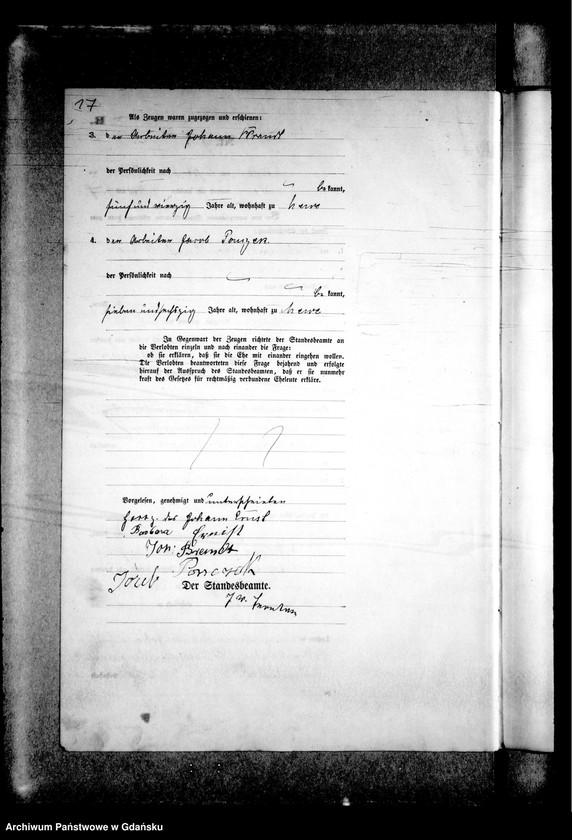 17
Als Zeugen waren zugezogen und erschienen:
3. der Arbeiter Johann Brandt
der Persönlichkeit nach
bekannt,
fünfundvierzig Jahre alt, wohnhaft zu Mewe
4. der Arbeiter Jacob
der Persönlichkeit nach
bekannt,
siebenundsechszig Jahre alt, wohnhaft zu Mewe
In Gegenwart der Zeugen richtete der Standesbeamte an
die Verlobten einzeln und nach einander die Frage:
ob sie erklären, daß sie die Ehe mit einander eingehen wollen.
Die Verlobten beantworteten diese Frage bejahend und erfolgte
hierauf der Ausspruch des Standesbeamten, daß er sie nunmehr
kraft des Gesetzes für rechtmäßig verbundene Eheleute erkläre.
Vorgelesen, genehmigt und unterschrieben
des Johann Ernst
Barbara Ernst
Joh: Brandt
Der Standesbeamte.
Archiwum Państwowe w Gdańsku